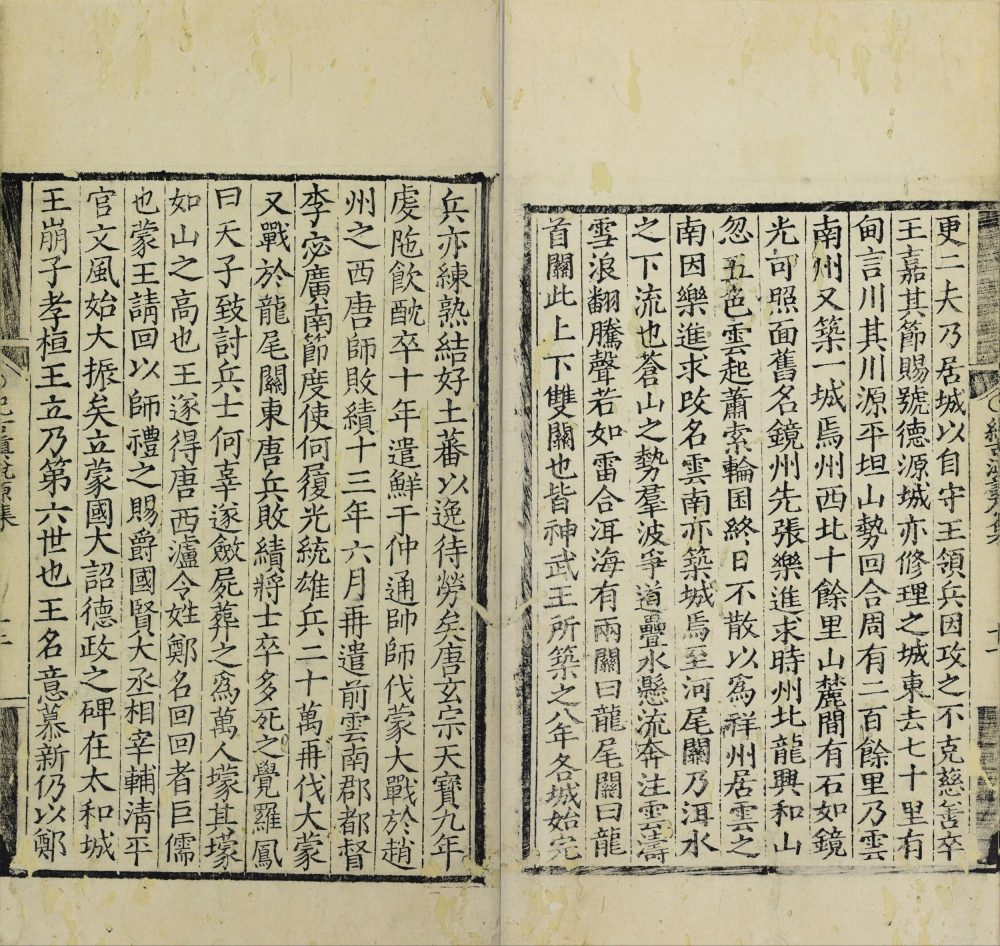 更二夫乃居城以自守王領兵因攻之不克慈善卒
王嘉其節賜號德源城亦修理之城東去七十里有
甸言川其川源平坦山勢回合周有二百餘里乃雲
南州又築一城焉州西北十餘里山麓間有石如鏡
光可照面舊名鏡州先張樂進求時州北龍興和山
忽五色雲起蕭索輪囷終日不散以為祥州居雲之
南因樂進求改名雲南亦築城焉至河尾關乃洱水
之下流也蒼山之勢羣波爭道疊水懸流奔注雲濤
雪浪翻騰聲若如雷合洱海有兩關曰龍尾關曰龍
首關此上下雙關也皆神武王所築之八年各城始完
兵亦練熟結好土蕃以逸待勞矣唐玄宗天寶九年
虔陁飲酖卒十年遣鮮于仲通帥師伐蒙大戰於趙
州之西唐師敗績十三年六月再遣前雲南郡都督
李宓廣南節度使何履光統雄兵二十萬再伐大蒙
又戰於龍尾關東唐兵敗績將士卒多死之覺羅鳳
曰天子致討兵士何辜遂斂屍葬之為萬人塚其塚
如山之高也王遂得唐西瀘令姓鄭名回回者巨儒
也蒙王請回以師禮之賜爵國賢大丞相宰輔清平
官文風始大振矣立蒙國大詔德政之碑在太和城
王崩子孝桓王立乃第六世也王名意慕新仍以鄭